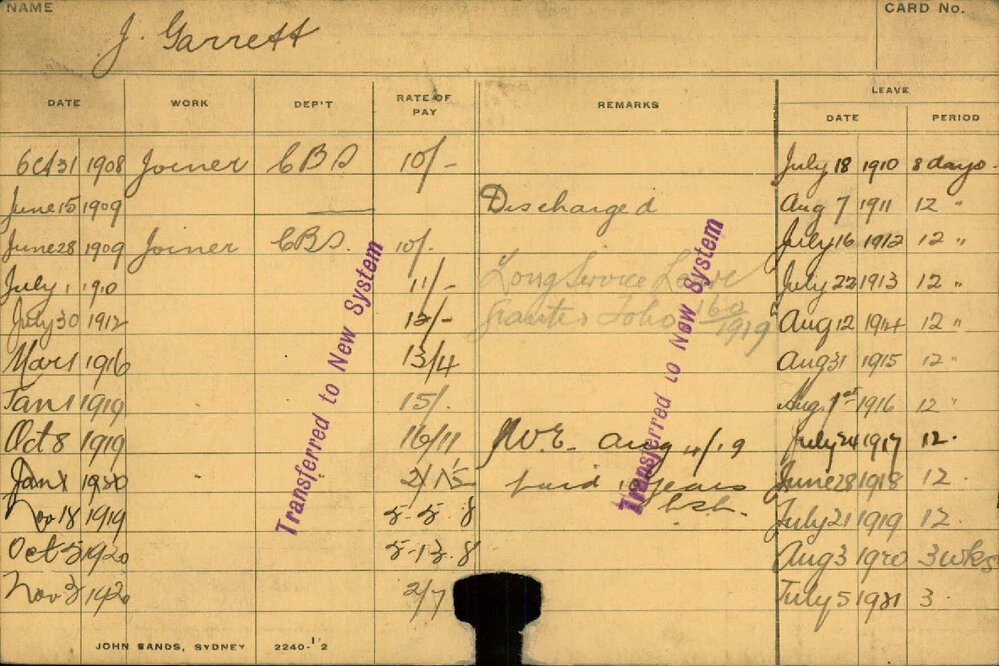 NAME J. Garrett CARD No.
DATE WORK DEP'T RATE OF PAY REMARKS LEAVE
DATE PERIOD
Oct 31 1908 Joiner CBD 10/- July 18 1910 8 days
June 15 1909 Discharged Aug 7 1911 12 "
June 28 1909 Joiner CBD. 10/- July 16 1912 12 "
July 1 1910 11/- Long Service Leave July 22 1913 12 "
July 30 1912 12/- Granted 160/1919 Aug 12 1914 12 "
Mar 1 1916 13/4 Aug 31 1915 12 "
Jan 1 1919 15/- Aug. 1st 1916 12 "
Oct 8 1919 16/11 Aug 11/19 July 24 1917 12.
Jan 1 1920 paid 10 years June 28 1918 12
Nov 18 1919 5-5-8 July 21 1919 12.
Oct 5 1920 5-13-8 Aug 3 1920 3 wks
Nov 3 1920 2/7 July 5 1921 3
Transferred to New System
Transferred to New System
JOHN SANDS, SYDNEY 2240-1/2